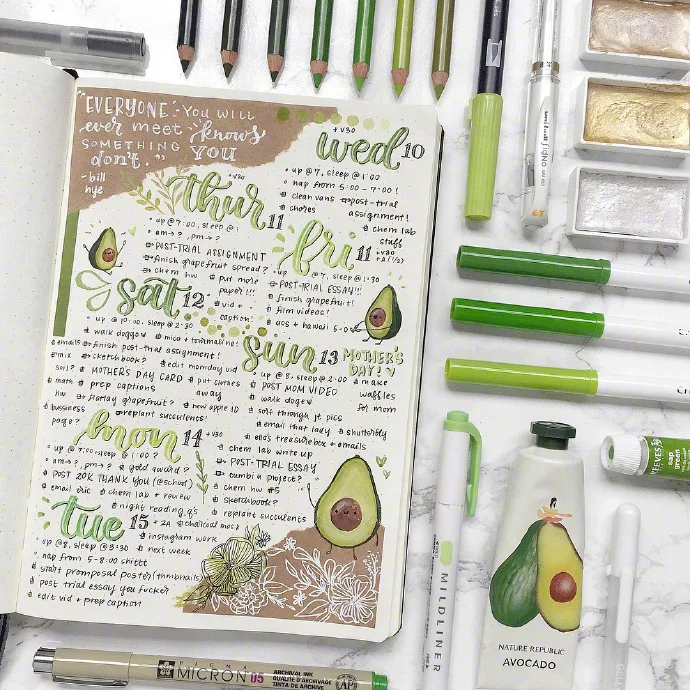 "EVERYONE - YOU WILL
ever meet knows
SOMETHING YOU
don't."
-bill
nye
+V30
wed 10
up @ 7, sleep @ 1:00
nap from 5:00 - 7:00!
clean vans post-trial
assignment!
chores
chem lab
stuff
thur 11
up @ 7:00, sleep @
am→?, pm→?
POST-TRIAL ASSIGNMENT
finish grapefruit spread?
chem hw put more
paper!!!
fri 11
up @ 7, sleep @ 1:30
POST-TRIAL ESSAY!!!
finish grapefruit!
film videos!
sat 12
vid +
caption!
up @ 10:00, sleep @ 2:30
walk doggo
finish post-trial assignment!
sketchbook?
MOTHER'S DAY CARD
prep captions
replant succulents!
emails
math
hw
page?
new apple ID
away
sun 13 MOTHER'S
DAY!
up @ 8, sleep @ 2:00
make
waffles
for mom
POST MOM VIDEO
walk doge
sort through ft pics
email that lady
shutterfly
emails
chem lab write up
POST-TRIAL ESSAY
cumbia project?
chem hw #5
sketchbook?
replant succulents
mon 14 +V30
up @ 7:00 sleep @ 1:00?
am→?, pm→? gold award?
POST 20K THANK YOU (@school)
email eric chem lab + review
night reading qs
tue 15 + 2A
instagram work
up @ 8, sleep @
next week
nap from 5-8:00
start promposal poster (thumbnails)
post trial essay you fucker
edit vid + prep caption
MILDLINER
NATURE REPUBLIC
AVOCADO
REEVES
sap
green
MICRON 05
ARCHIVAL INK
QUALITÉ D'ARCHIVAGE
TINTA DE ARCHIVE
AP